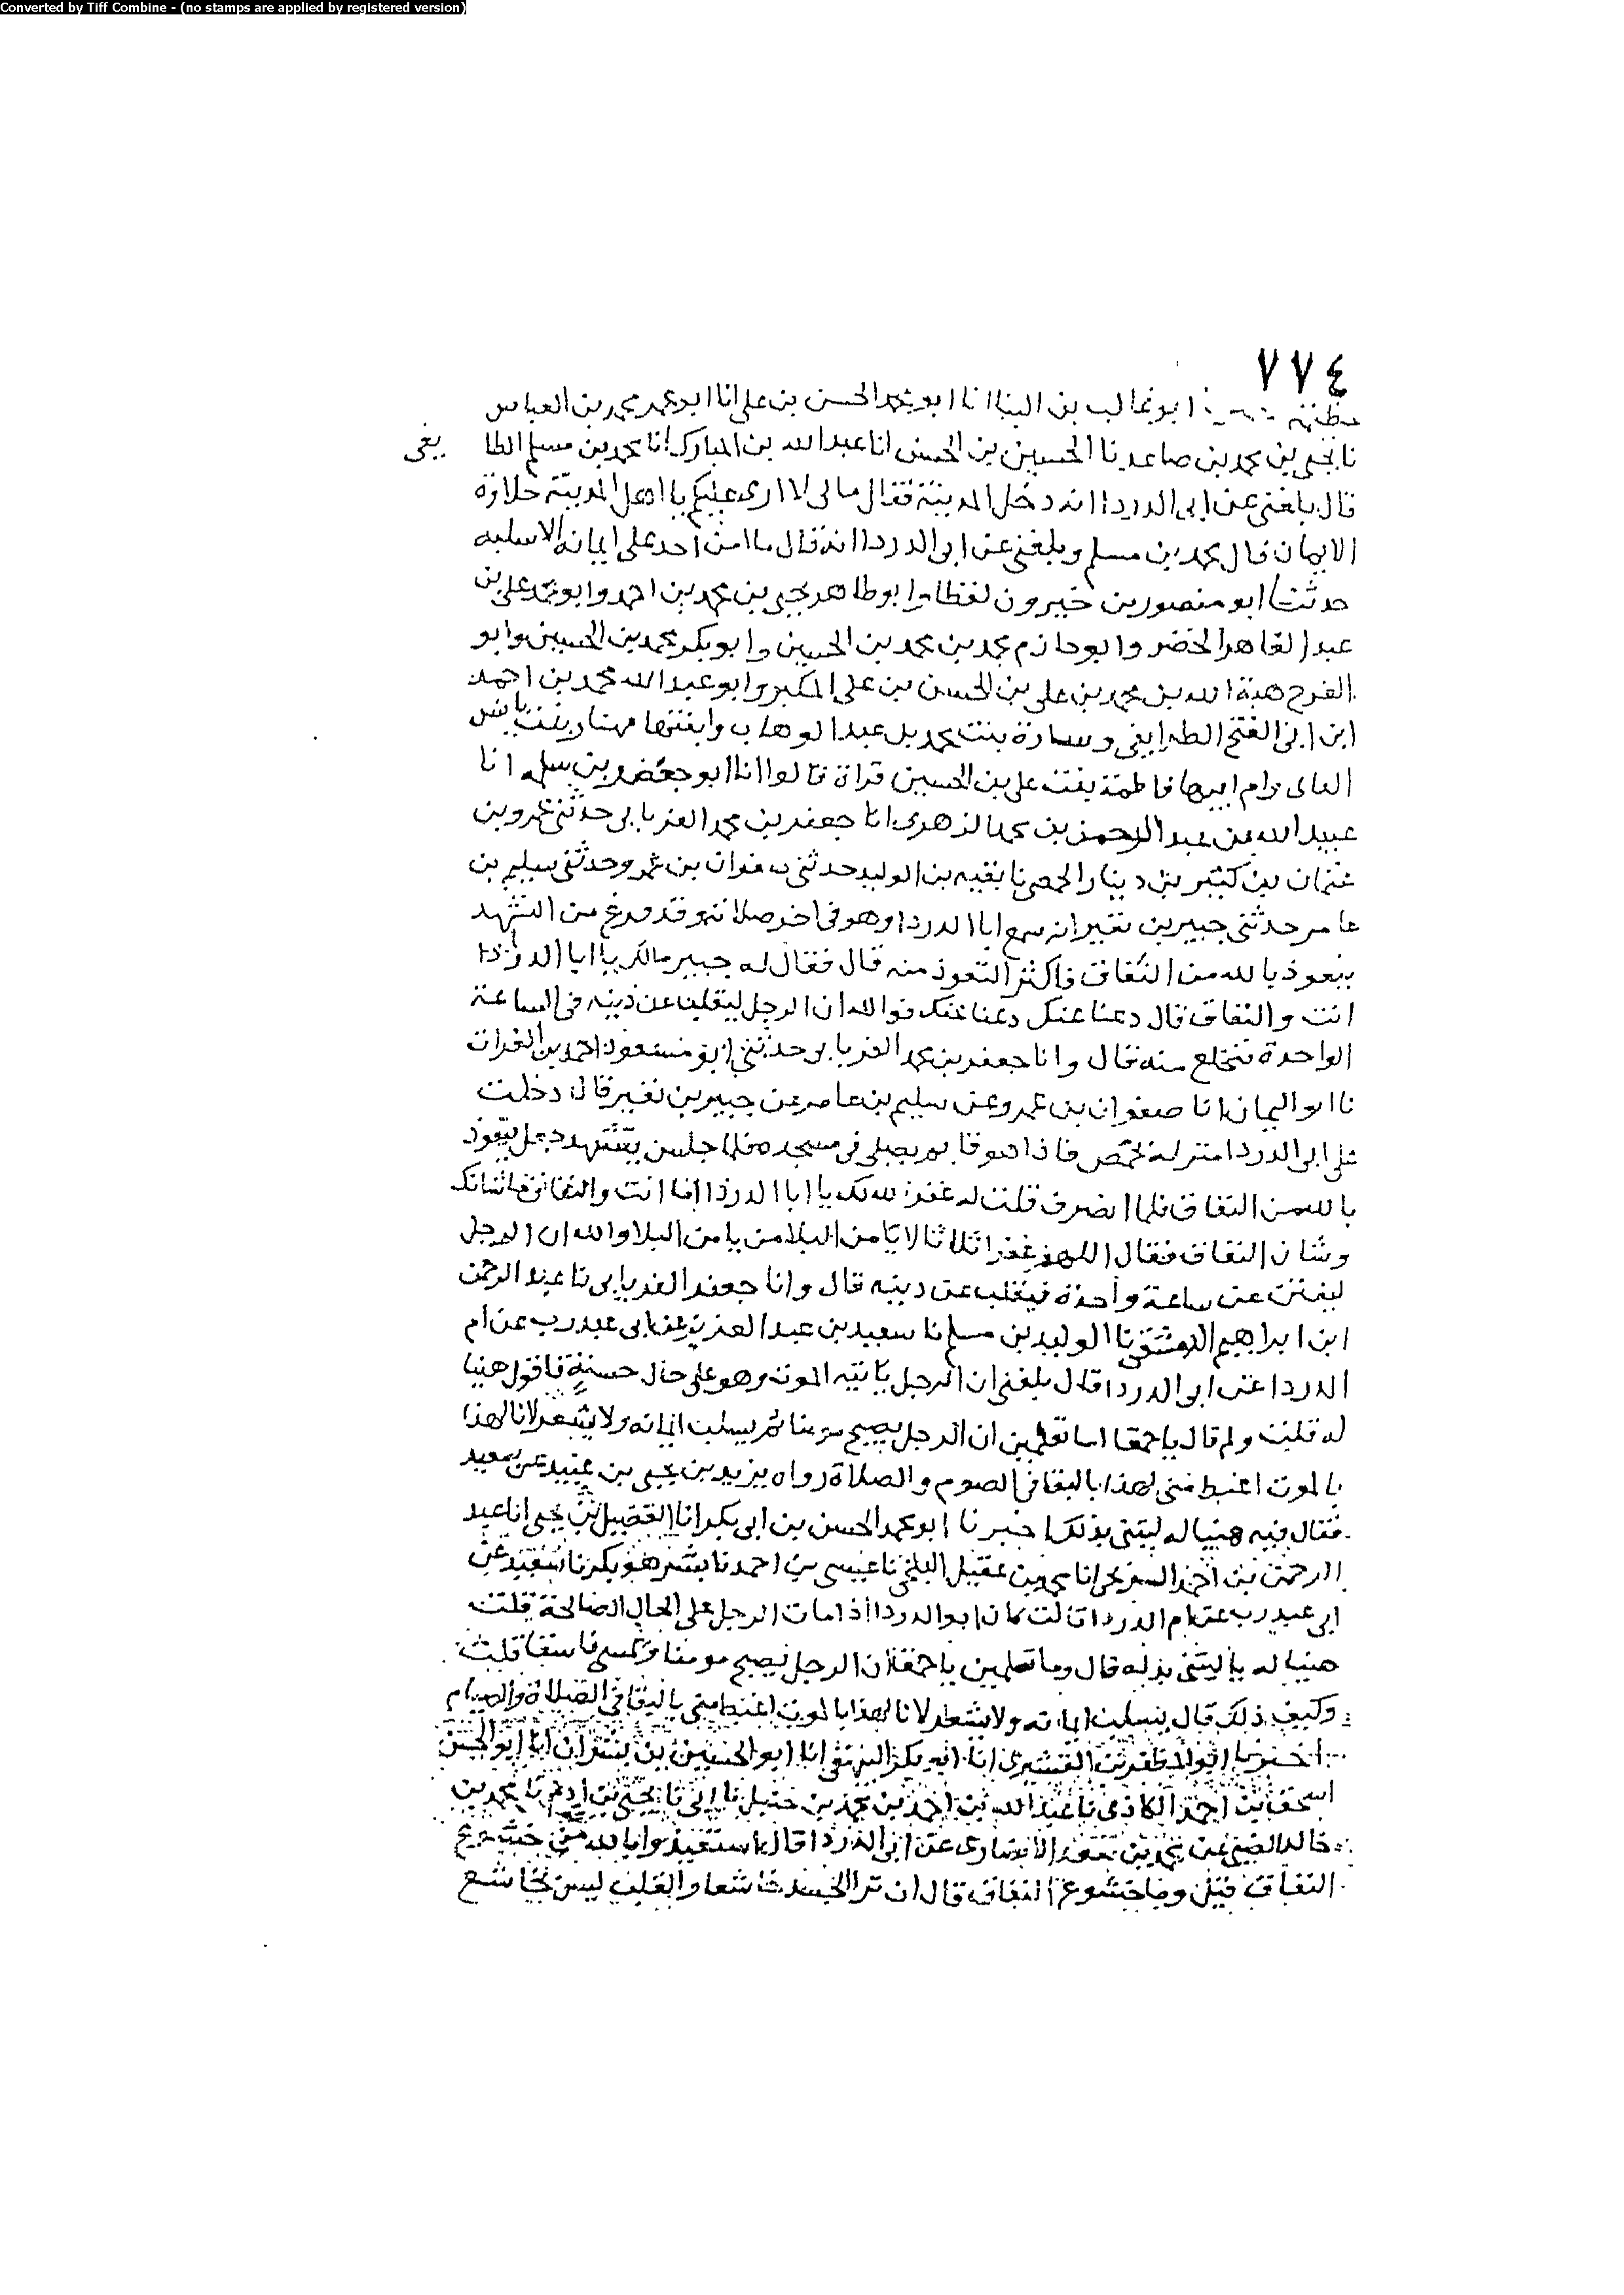 Converted by Tiff Combine - (no stamps are applied by registered version)
٧٧٤
ابو غالب بن البنا انا ابو محمد الحسن بن على انا ابو عمر محمد بن العباس
نا يحيى بن محمد بن صاعد نا الحسين بن الحسن انا عبد الله بن المبارك انا محمد بن مسلم الطا يفى
قال بلغنى عن ابى الدردا انه دخل المدينة فقال مالى لا ارى عليكم يا اهل المدينة حلاوة
الايمان قال محمد بن مسلم وبلغنى عن ابى الدردا انه قال ما امن احد على ايمانه الا سلبه
حدثنا ابو منصور بن خيرون لفظا وابو طاهر يحيى بن محمد بن احمد وابو محمد على بن
عبد القاهر الخضر وابو حازم محمد بن محمد بن الحسين وابو بكر محمد بن الحسين وابو
الفرج هبة الله بن محمد بن على بن الحسن بن على المكبر وابو عبد الله محمد بن احمد
ابن ابى الفتح الطرايفى وسارة بنت محمد بن عبد الوهاب وابنتها مهناز بنت يانس
وام ابيها فاطمة بنت على بن الحسين قراة قالوا انا ابو جعفر بن مسلمه انا
عبيد الله بن عبد الرحمن بن محمد الزهرى انا جعفر بن محمد الفريابى حدثنى عمرو بن
عثمان بن كثير بن دينار الحمصى نا بقيه بن الوليد حدثنى صفوان بن عمرو حدثنى سليم بن
عامر حدثنى جبير بن نفير انه سمع ابا الدردا وهو فى اخر صلاته وقد فرغ من التشهد
يتعوذ بالله من النفاق فاكثر التعوذ منه قال فقال له جبير مالك يا ابا الدردا
انت والنفاق قال دعنا عنك دعنا عنك فوالله ان الرجل ليقلب عن دينه فى الساعة
الواحدة فتخلع منه قال وانا جعفر بن محمد الفريابى حدثنى ابو مسعود احمد بن الفرات
نا ابو اليمان انا صفوان بن عمرو عن سليم بن عامر عن جبير بن نفير قال دخلت
على ابى الدردا منزله بحمص فاذا هو قايم يصلى فى مسجده فلما جلس يتشهد جعل يتعوذ
بالله من النفاق فلما انصرف قلت له غفر الله لك يا ابا الدردا اما انت والنفاق ما شانك
وشان النفاق فقال اللهم غفرا ثلاثا لا يامن البلا من يامن البلا والله ان الرجل
ليفتتن عن ساعة واحدة فينقلب عن دينه قال وانا جعفر الفريابى نا عبد الرحمن
ابن ابراهيم الدمشقى نا الوليد بن مسلم نا سعيد بن عبد العزيز عن ابى عبد رب عن ام
الدردا عن ابو الدردا قال بلغنى ان الرجل ياتيه الموت وهو على حال حسنة فاقول هنيا
له قلت ولم قال يا حمقا اما تعلمين ان الرجل يصبح مومنا ثم يسلب ايمانه ولا يشعر لانا لهذا
بالموت اغبط منى لهذا بالبقا فى الصوم والصلاة رواه يزيد بن يحيى بن عبيد عن سعيد
فقال فيه هنيا له ليتنى بذلك اخبرنا ابو محمد الحسن بن ابى بكر انا الفضيل بن يحيى انا عبد
الرحمن بن احمد السريجى انا محمد بن عقيل البلخى نا عيسى بن احمد نا بشر هو بكر نا سعيد عن
ابى عبد رب عن ام الدردا قالت كان ابو الدردا اذا مات الرجل على الحال الصالحة قلت
هنيا له يا ليتنى بدله قال وما تعلمين يا حمقا ان الرجل يصبح مومنا ويمسى فاسقا قلت
وكيف ذلك قال يسلب ايمانه ولا يشعر لانا لهذا بالموت اغبط منى بالبقا فى الصلاة والصيام
اخبرنا ابو المظفر بن القشيرى انا ابو بكر البيهقى انا ابو الحسين بن بشران انا ابو الحسن
اسحق بن احمد الكاذى نا عبد الله بن احمد بن محمد بن حنبل نا ابى نا يحيى بن ادم نا محمد بن
خالد الضبى عن محمد بن سعد الانصارى عن ابى الدردا قال استعيذوا بالله من خشوع
النفاق قيل وما خشوع النفاق قال ان ترا الجسد خاشعا والقلب ليس بخاشع